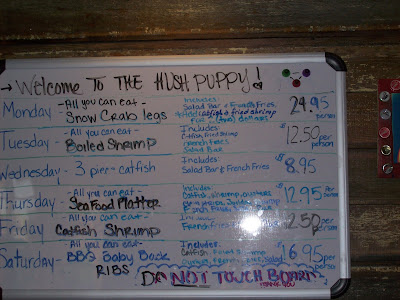 → Welcome To THE HUSH PUPPY!
Monday - All you can eat - Snow Crab legs
Includes:
Salad Bar & French Fries
Add catfish & fried shrimp
For dollars
24.95 per person
Tuesday - All you can eat - Boiled Shrimp
Includes:
Catfish Fried Shrimp
French Fries
Salad Bar
$12.50 per person
Wednesday - 3 piece catfish
Includes:
Salad Bar & French Fries
$8.95
Thursday - All you can eat - Sea Food Platter
Includes:
Catfish, shrimp, oysters
French Fries
$12.95 per person
Friday - All you can eat - Catfish Shrimp
Includes:
French Fries
2.50 per person
Saturday - All you can eat - BBQ Baby Back RIBS
Includes:
Catfish
$16.95 per person
DO NOT TOUCH BOARD
THANK YOU